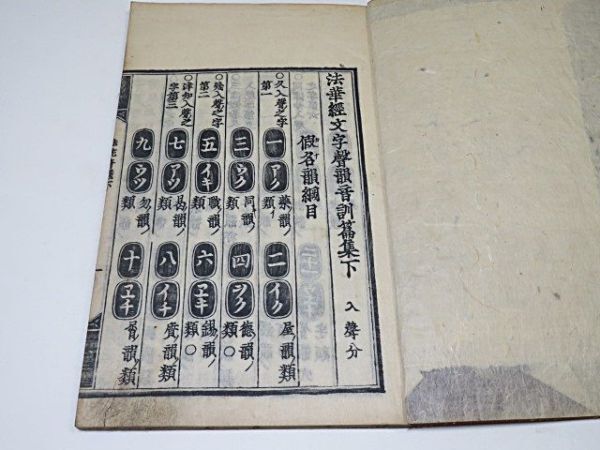 法華經文字聲韻音訓篇集下 入聲分
假名韻綱目
〇久入聲之字第一
一 アク 藥韻ノ類イ
二 イク 屋韻ノ類
三 ウク 同韻ノ類イ
四 ヲク 德韻ノ類〇
〇幾入聲之字第二
五 イキ 職韻ノ類
六 ヱキ 錫韻ノ類〇
〇津知入聲之字第三
七 アツ 曷韻ノ類
八 イチ 質韻ノ類〇
九 ウツ 勿韻ノ類
十 ヱチ 韻ノ類